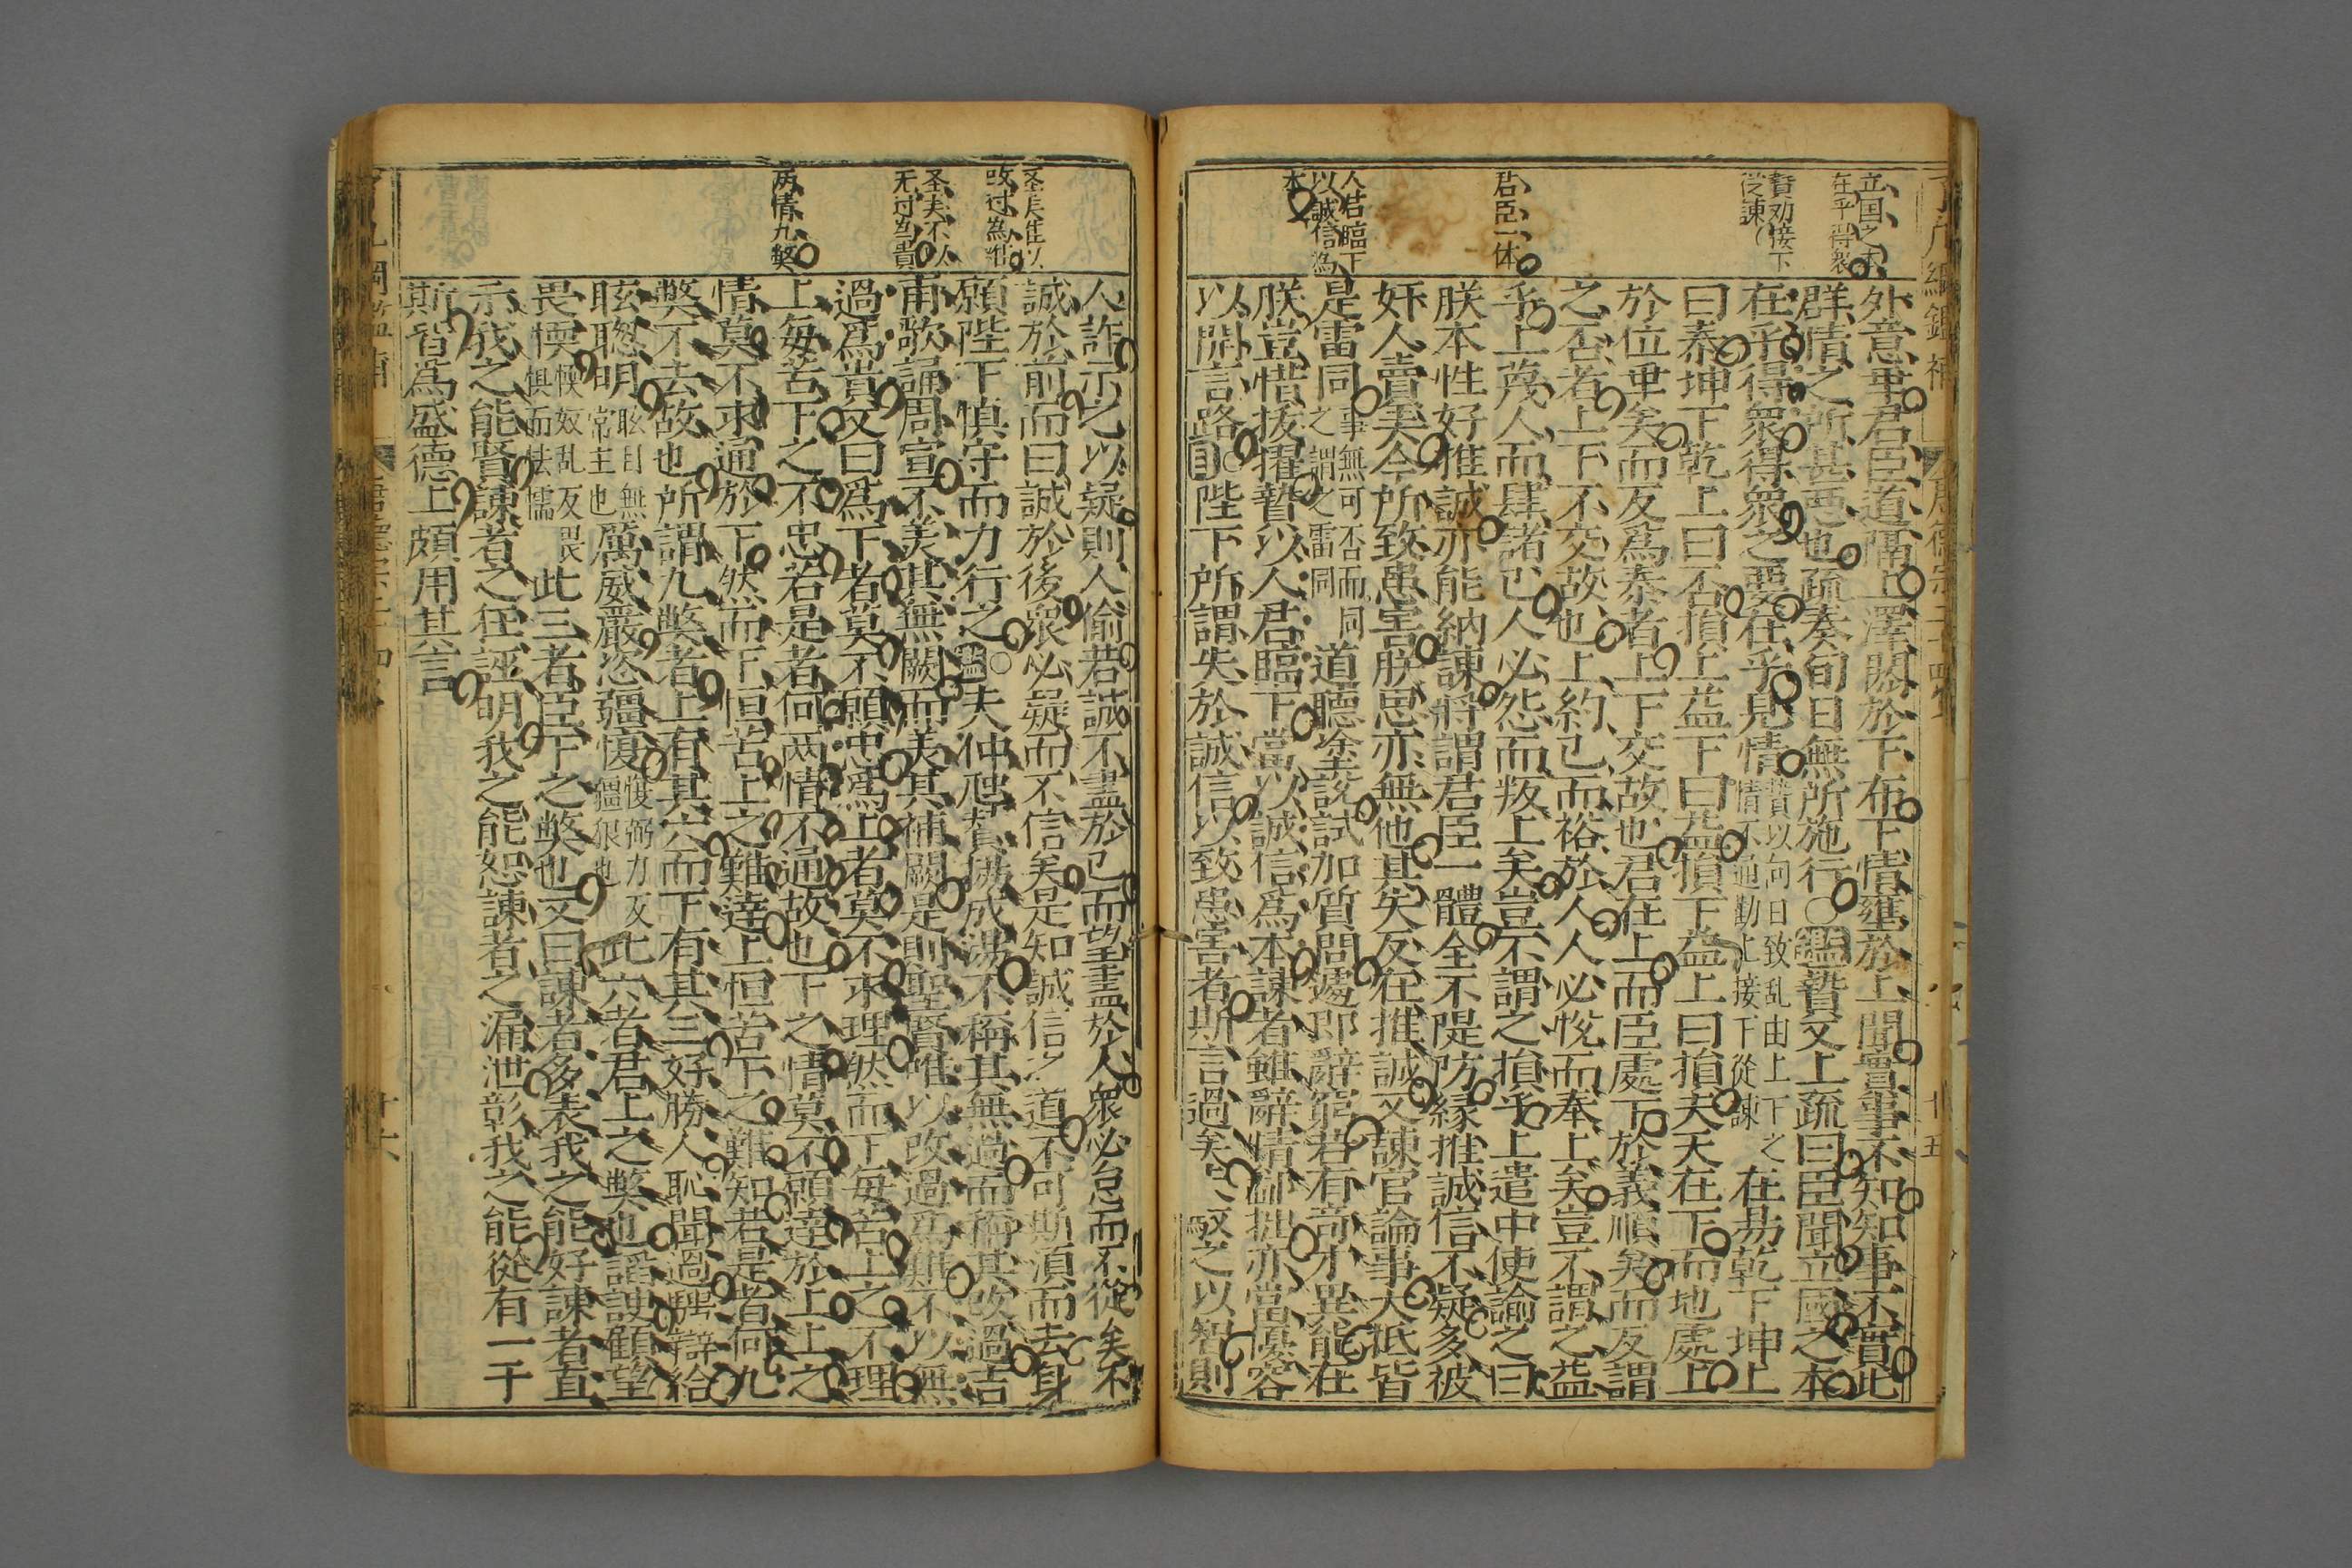 立国之本
在乎得衆
贄劝接下
從諫
君臣一体
人君臨下
以誠信為
本
外意乖君臣道隔上澤闕於下布下情壅於上聞實事不知知事不實此
群情之所甚惡也疏奏旬日無所施行○鑑贄又上疏曰臣聞立國之本
在乎得衆得衆之要在乎見情
贄以向日致乱由上下之
情不通勸上接下從諫
在易乾下坤上
曰泰坤下乾上曰否損上益下曰益損下益上曰損夫天在下而地處上
於位乖矣而反爲泰者上下交故也君在上而臣處下於義順矣而反謂
之否者上下不交故也上約已而裕於人人必悅而奉上矣豈不謂之益
乎上蔑人而肆諸已人必怨而叛上矣豈不謂之損乎上遣中使諭之曰
朕本性好推誠亦能納諫將謂君臣一體全不隄防緣推誠信不疑多被
奸人賣弄今所致患害朕思亦無他其失反在推誠又諫官論事大抵皆
是雷同
事無可否而同
之謂之雷同
道聽塗說試加質問遽即辭窮若有奇才異能在
朕豈惜拔擢贄以人君臨下當以誠信爲本諫者雖辭情鄙拙亦當優容
以開言路○目陛下所謂失於誠信以致患害者斯言過矣馭之以智則
圣賢惟以
改过為難
圣夫不以
无过为貴
两情九獘
人詐示之以疑則人偷若誠不盡於已而望盡於人衆必怠而不從矣不
誠於前而曰誠於後衆必疑而不信矣是知誠信之道不可斯湏而去身
願陛下慎守而力行之○鑑夫仲虺賛揚成湯不稱其無過而稱其改過吉
甫歌誦周宣不美其無闕而美其補闕是則聖賢唯以改過爲難不以無
過爲貴又曰爲下者莫不願忠爲上者莫不求理然而下每苦上之不理
上每苦下之不忠若是者何兩情不通故也下之情莫不願達於上上之
情莫不求通於下然而下恒苦上之難達上恒苦下之難知若是者何九
獘不去故也所謂九獘者上有其六而下有其三好勝人恥聞過騁辯給
眩聰明
眩目無
常主也
厲威嚴恣疆愎
愎弼力反
疆狠也
此六者君上之獘也諂諛顧望
畏愞
愞奴乱反畏
惧而怯懦
此三者臣下之獘也又曰諫者多表我之能好諫者直
示我之能賢諫者之狂誣明我之能恕諫者之漏泄彰我之能從有一于
斯皆爲盛德上頗用其言
十六